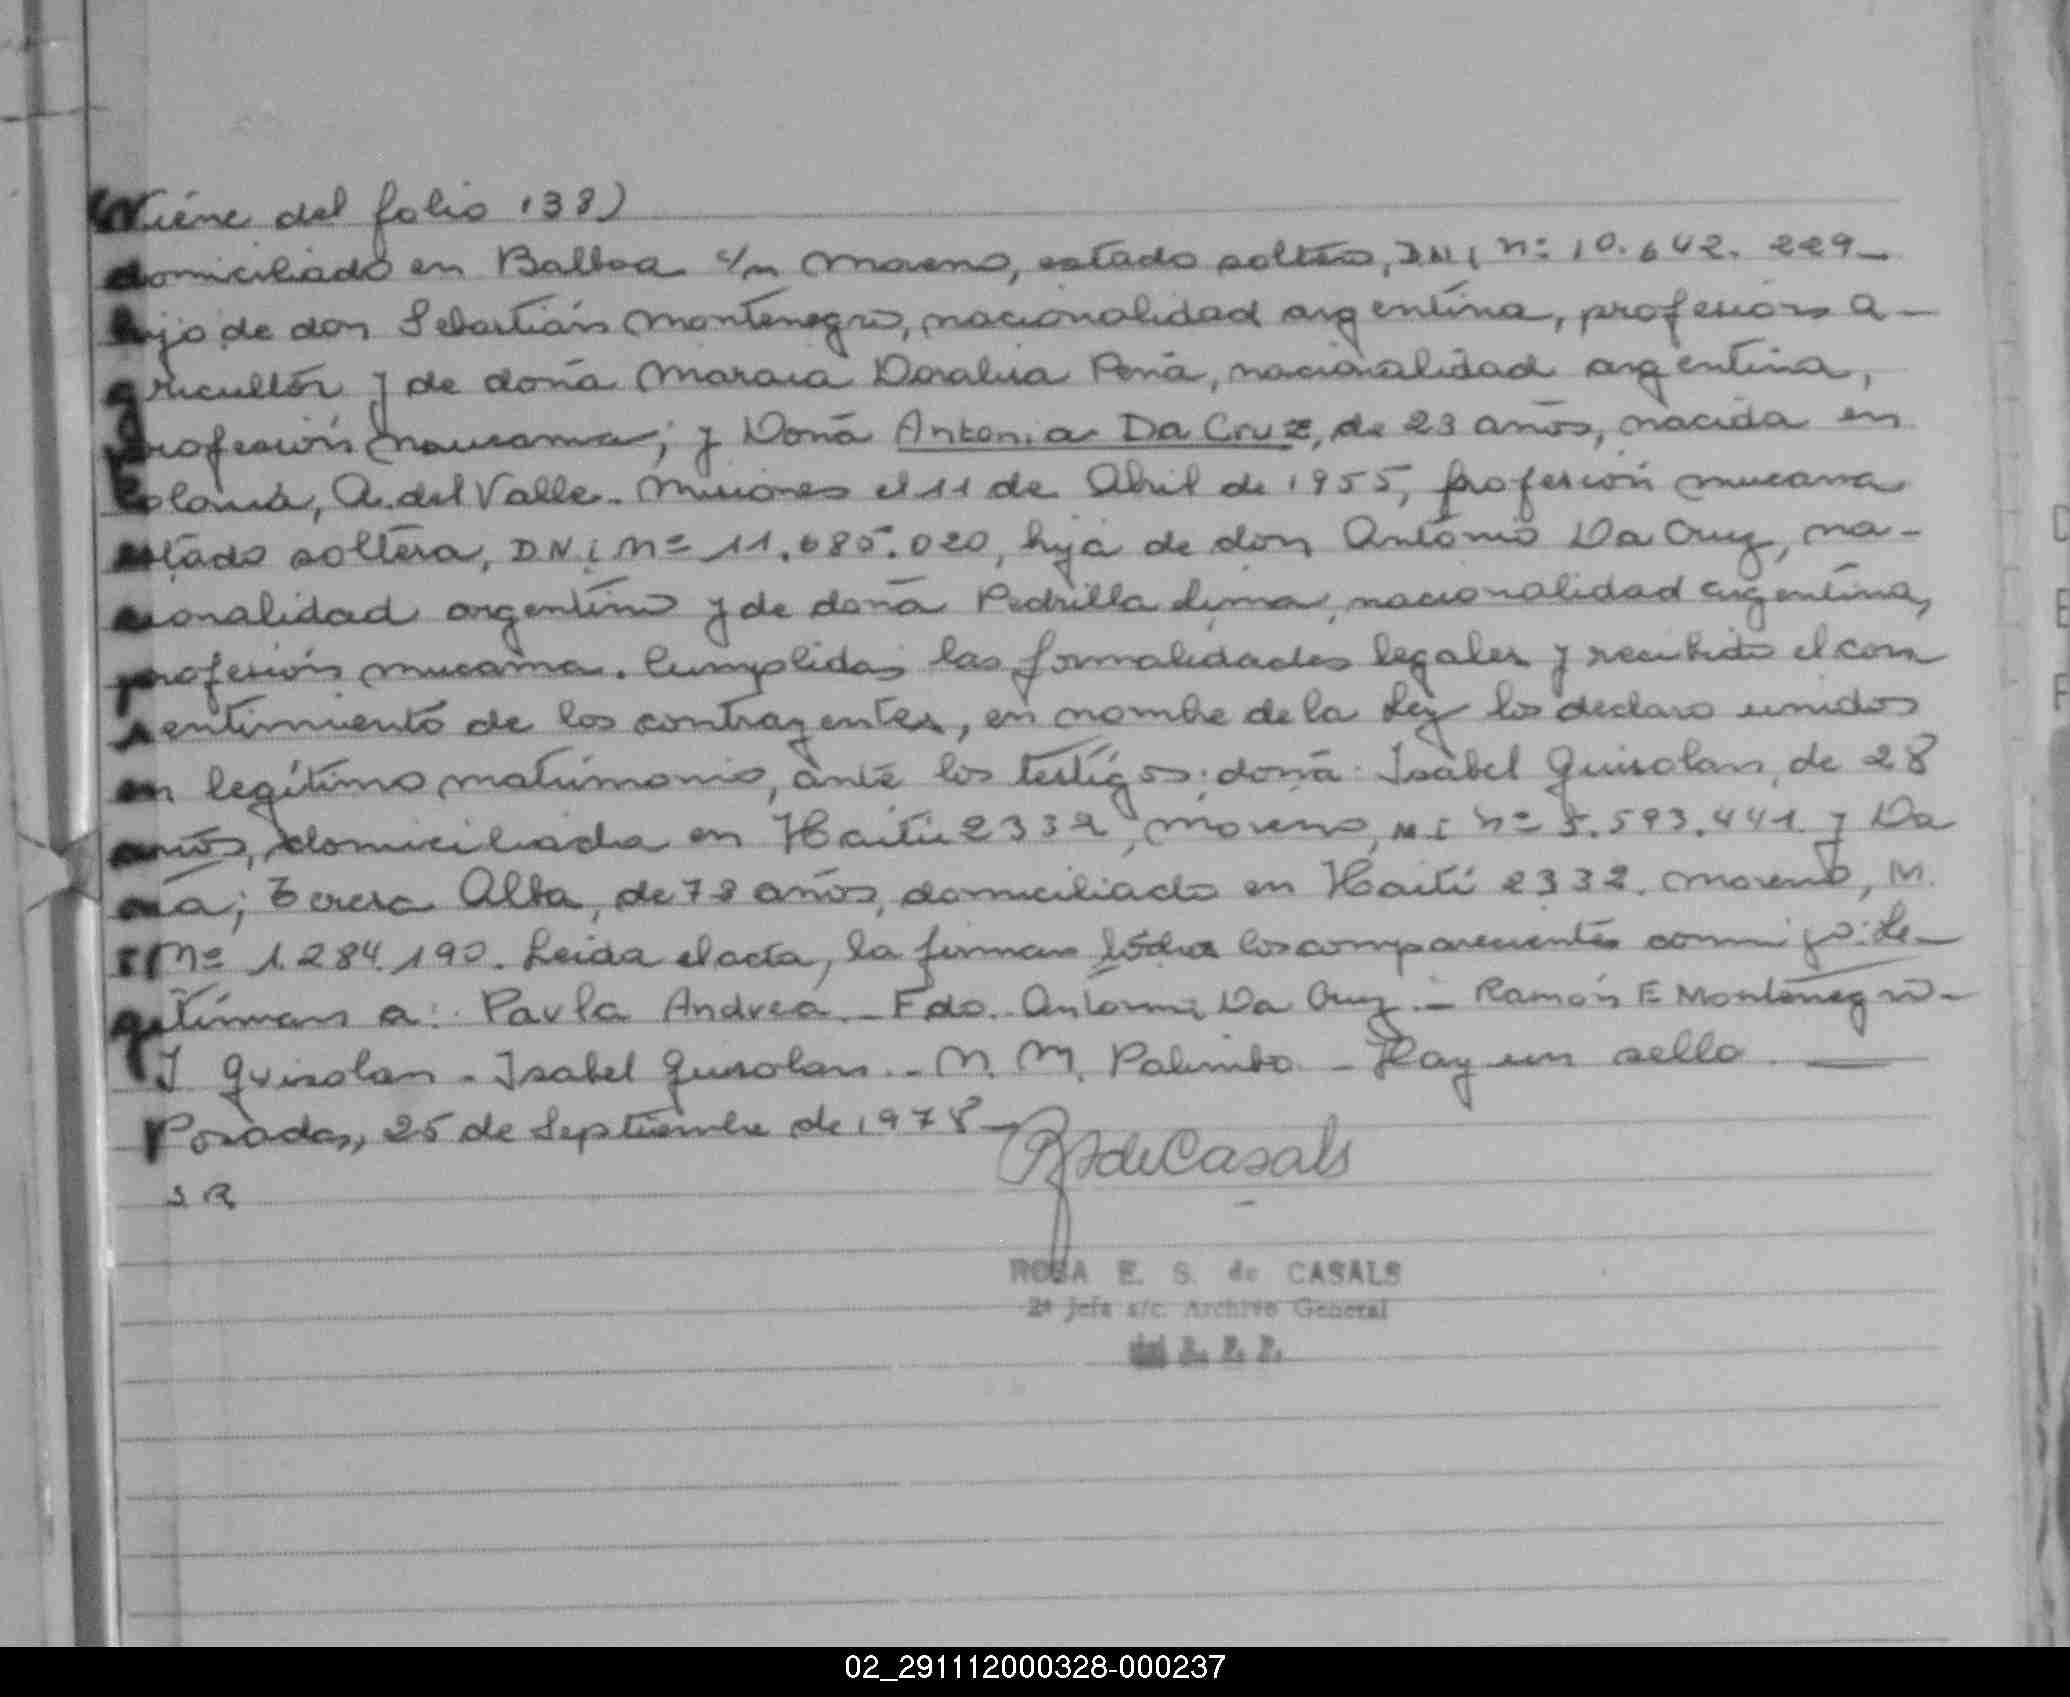 (Viene del folio 138)
domiciliado en Balboa s/n Moreno, estado soltero, DNI nº 10.642.229_
hijo de don Sebastián Montenegro, nacionalidad argentina, profesión a-
gricultor y de doña Doralisa Peña, nacionalidad argentina,
profesión mucama; y Doña Antonia Da Cruz, de 23 años, nacida en
Colonia, A. del Valle. Misiones el 11 de Abril de 1955, profesión mucama
estado soltera, DNI Nº 11.685.020, hija de don Antonio Da Cruz, na-
cionalidad argentino y de doña Pedrilla Lima, nacionalidad argentina,
profesión mucama. Cumplidas las formalidades legales y recibido el con
sentimiento de los contrayentes, en nombre de la Ley los declaro unidos
en legítimo matrimonio, ante los testigos: doña Isabel Guisolan, de 28
años, domiciliada en Haití 2332, Moreno, M I nº 5.593.441 y Do
ña; Teresa Alba, de 78 años, domiciliado en Haití 2332. Moreno, M.
I Nº 1.284.190. Leída el acta, la firman todos los comparecientes conmigo: Le-
gitiman a: Paula Andrea._ Fdo. Antonia Da Cruz._ Ramón E Montenegro-
I Guisolan - Isabel Guisolan._ M. M. Palimbo - Hay un sello
Posadas, 25 de Septiembre de 1978_
S R
R S de Casals
ROSA E. S. de CASALS
2ª Jefa a/c. Archivo General
del R. P. P.
02_291112000328-000237